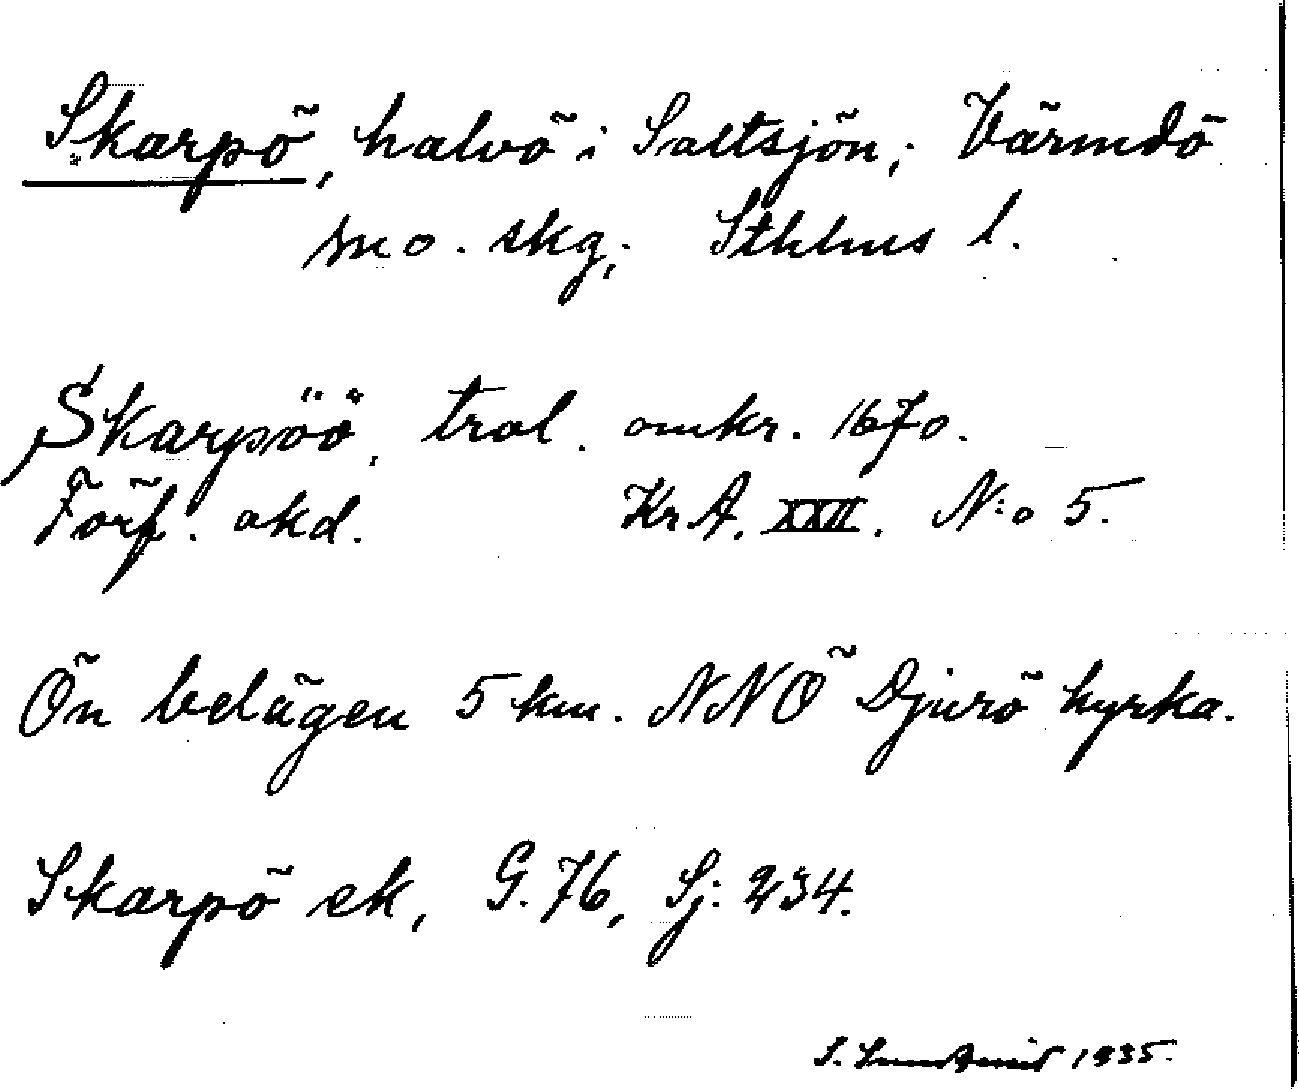 Skarpö, halvö i Saltsjön; Värmdö
m o. skg; Sthlms l.
Skarpöö, trol. omkr. 1670.
Förf. okd. Kr. A. XXII. N:o 5.
Ön belägen 5 km. NNÖ Djurö kyrka.
Skarpö ek, G. 76, Sj: 234.
S. 1935.